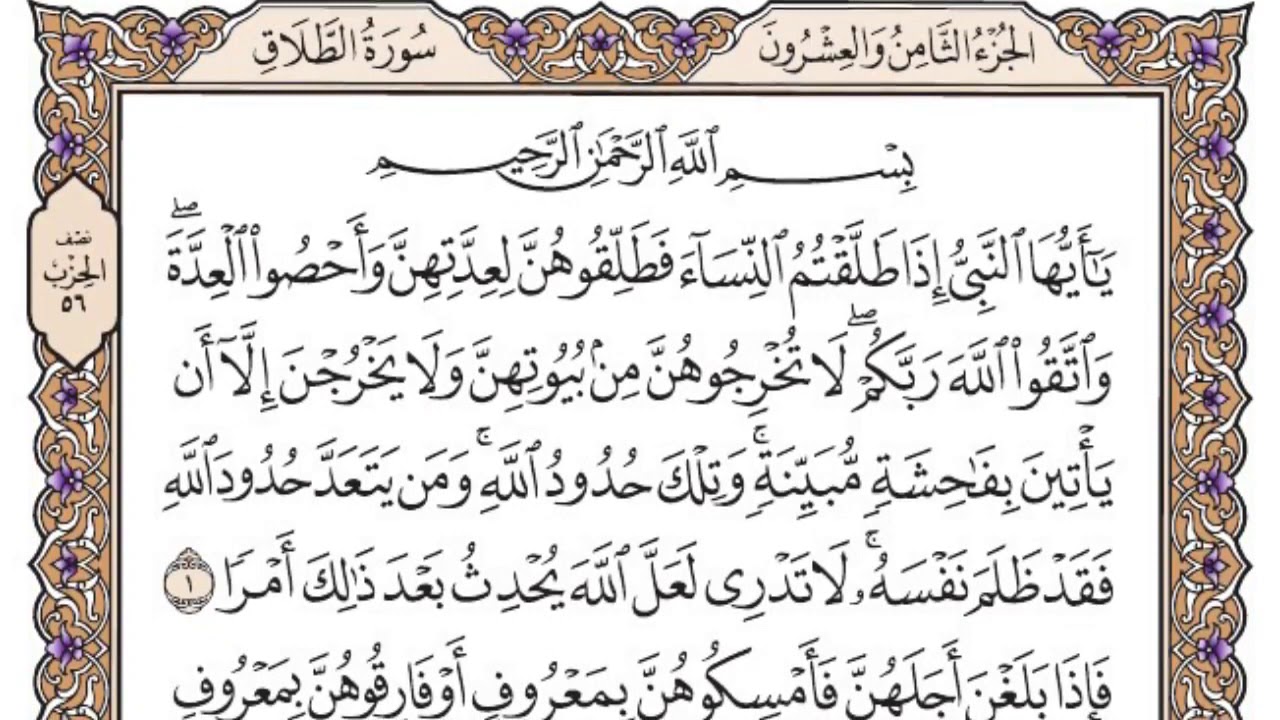 الجُزْءُ الثَّامِنُ وَالعِشْرُونَ
سُورَةُ الطَّلَاقِ
بِسْمِ ٱللَّهِ ٱلرَّحْمَٰنِ ٱلرَّحِيمِ
نصف
الحِزْب
٥٦
يَـٰٓأَيُّهَا ٱلنَّبِىُّ إِذَا طَلَّقْتُمُ ٱلنِّسَآءَ فَطَلِّقُوهُنَّ لِعِدَّتِهِنَّ وَأَحْصُوا۟ ٱلْعِدَّةَ ۖ
وَٱتَّقُوا۟ ٱللَّهَ رَبَّكُمْ ۖ لَا تُخْرِجُوهُنَّ مِنۢ بُيُوتِهِنَّ وَلَا يَخْرُجْنَ إِلَّآ أَن
يَأْتِينَ بِفَـٰحِشَةٍ مُّبَيِّنَةٍ ۚ وَتِلْكَ حُدُودُ ٱللَّهِ ۚ وَمَن يَتَعَدَّ حُدُودَ ٱللَّهِ
فَقَدْ ظَلَمَ نَفْسَهُۥ ۚ لَا تَدْرِى لَعَلَّ ٱللَّهَ يُحْدِثُ بَعْدَ ذَٰلِكَ أَمْرًا ١
فَإِذَا بَلَغْنَ أَجَلَهُنَّ فَأَمْسِكُوهُنَّ بِمَعْرُوفٍ أَوْ فَارِقُوهُنَّ بِمَعْرُوفٍ